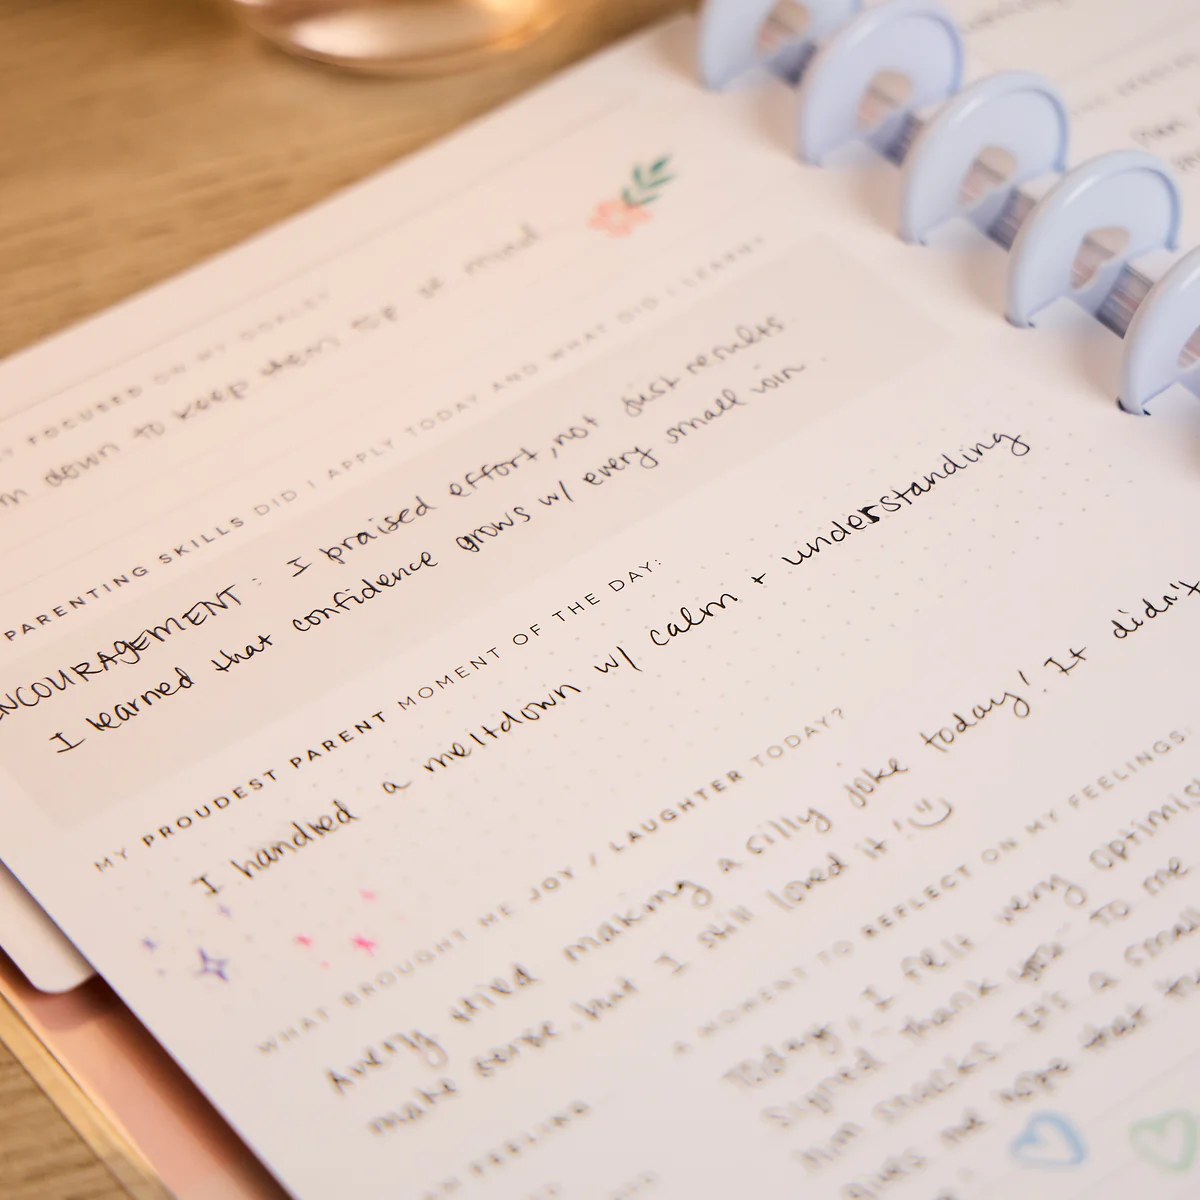 FOCUSED ON MY GOALS?
down to keep them top of mind
PARENTING SKILLS DID I APPLY TODAY AND WHAT DID I LEARN?
ENCOURAGEMENT: I praised effort, not just results
I learned that confidence grows w/ every small win.
MY PROUDEST PARENT MOMENT OF THE DAY:
I handled a meltdown w/ calm + understanding
WHAT BROUGHT ME JOY / LAUGHTER TODAY?
Avery tried making a silly joke today! It didn't
make sense but I still loved it!
A MOMENT TO REFLECT ON MY FEELINGS:
Today, I felt very optimis
signed "thank you" to me
him snacks. It's a small
gives me hope that
FEELING